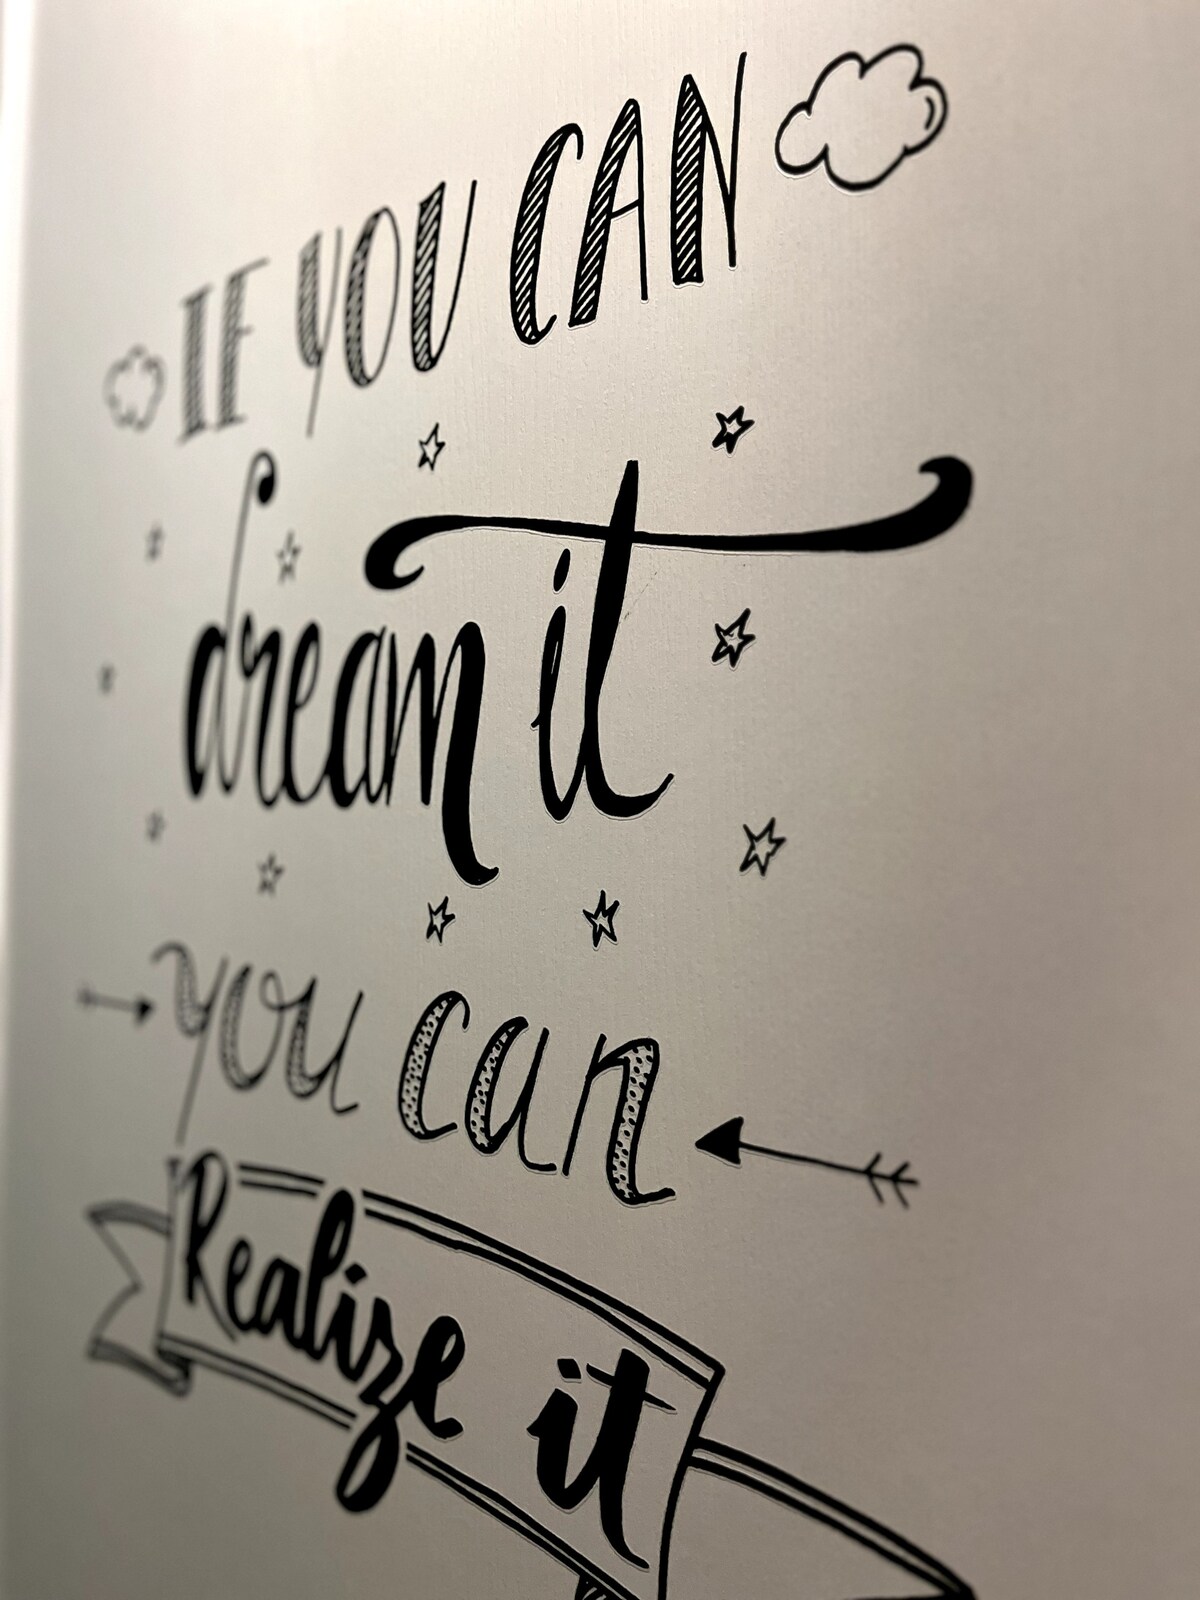 IF YOU CAN
dream it
you can
Realize it